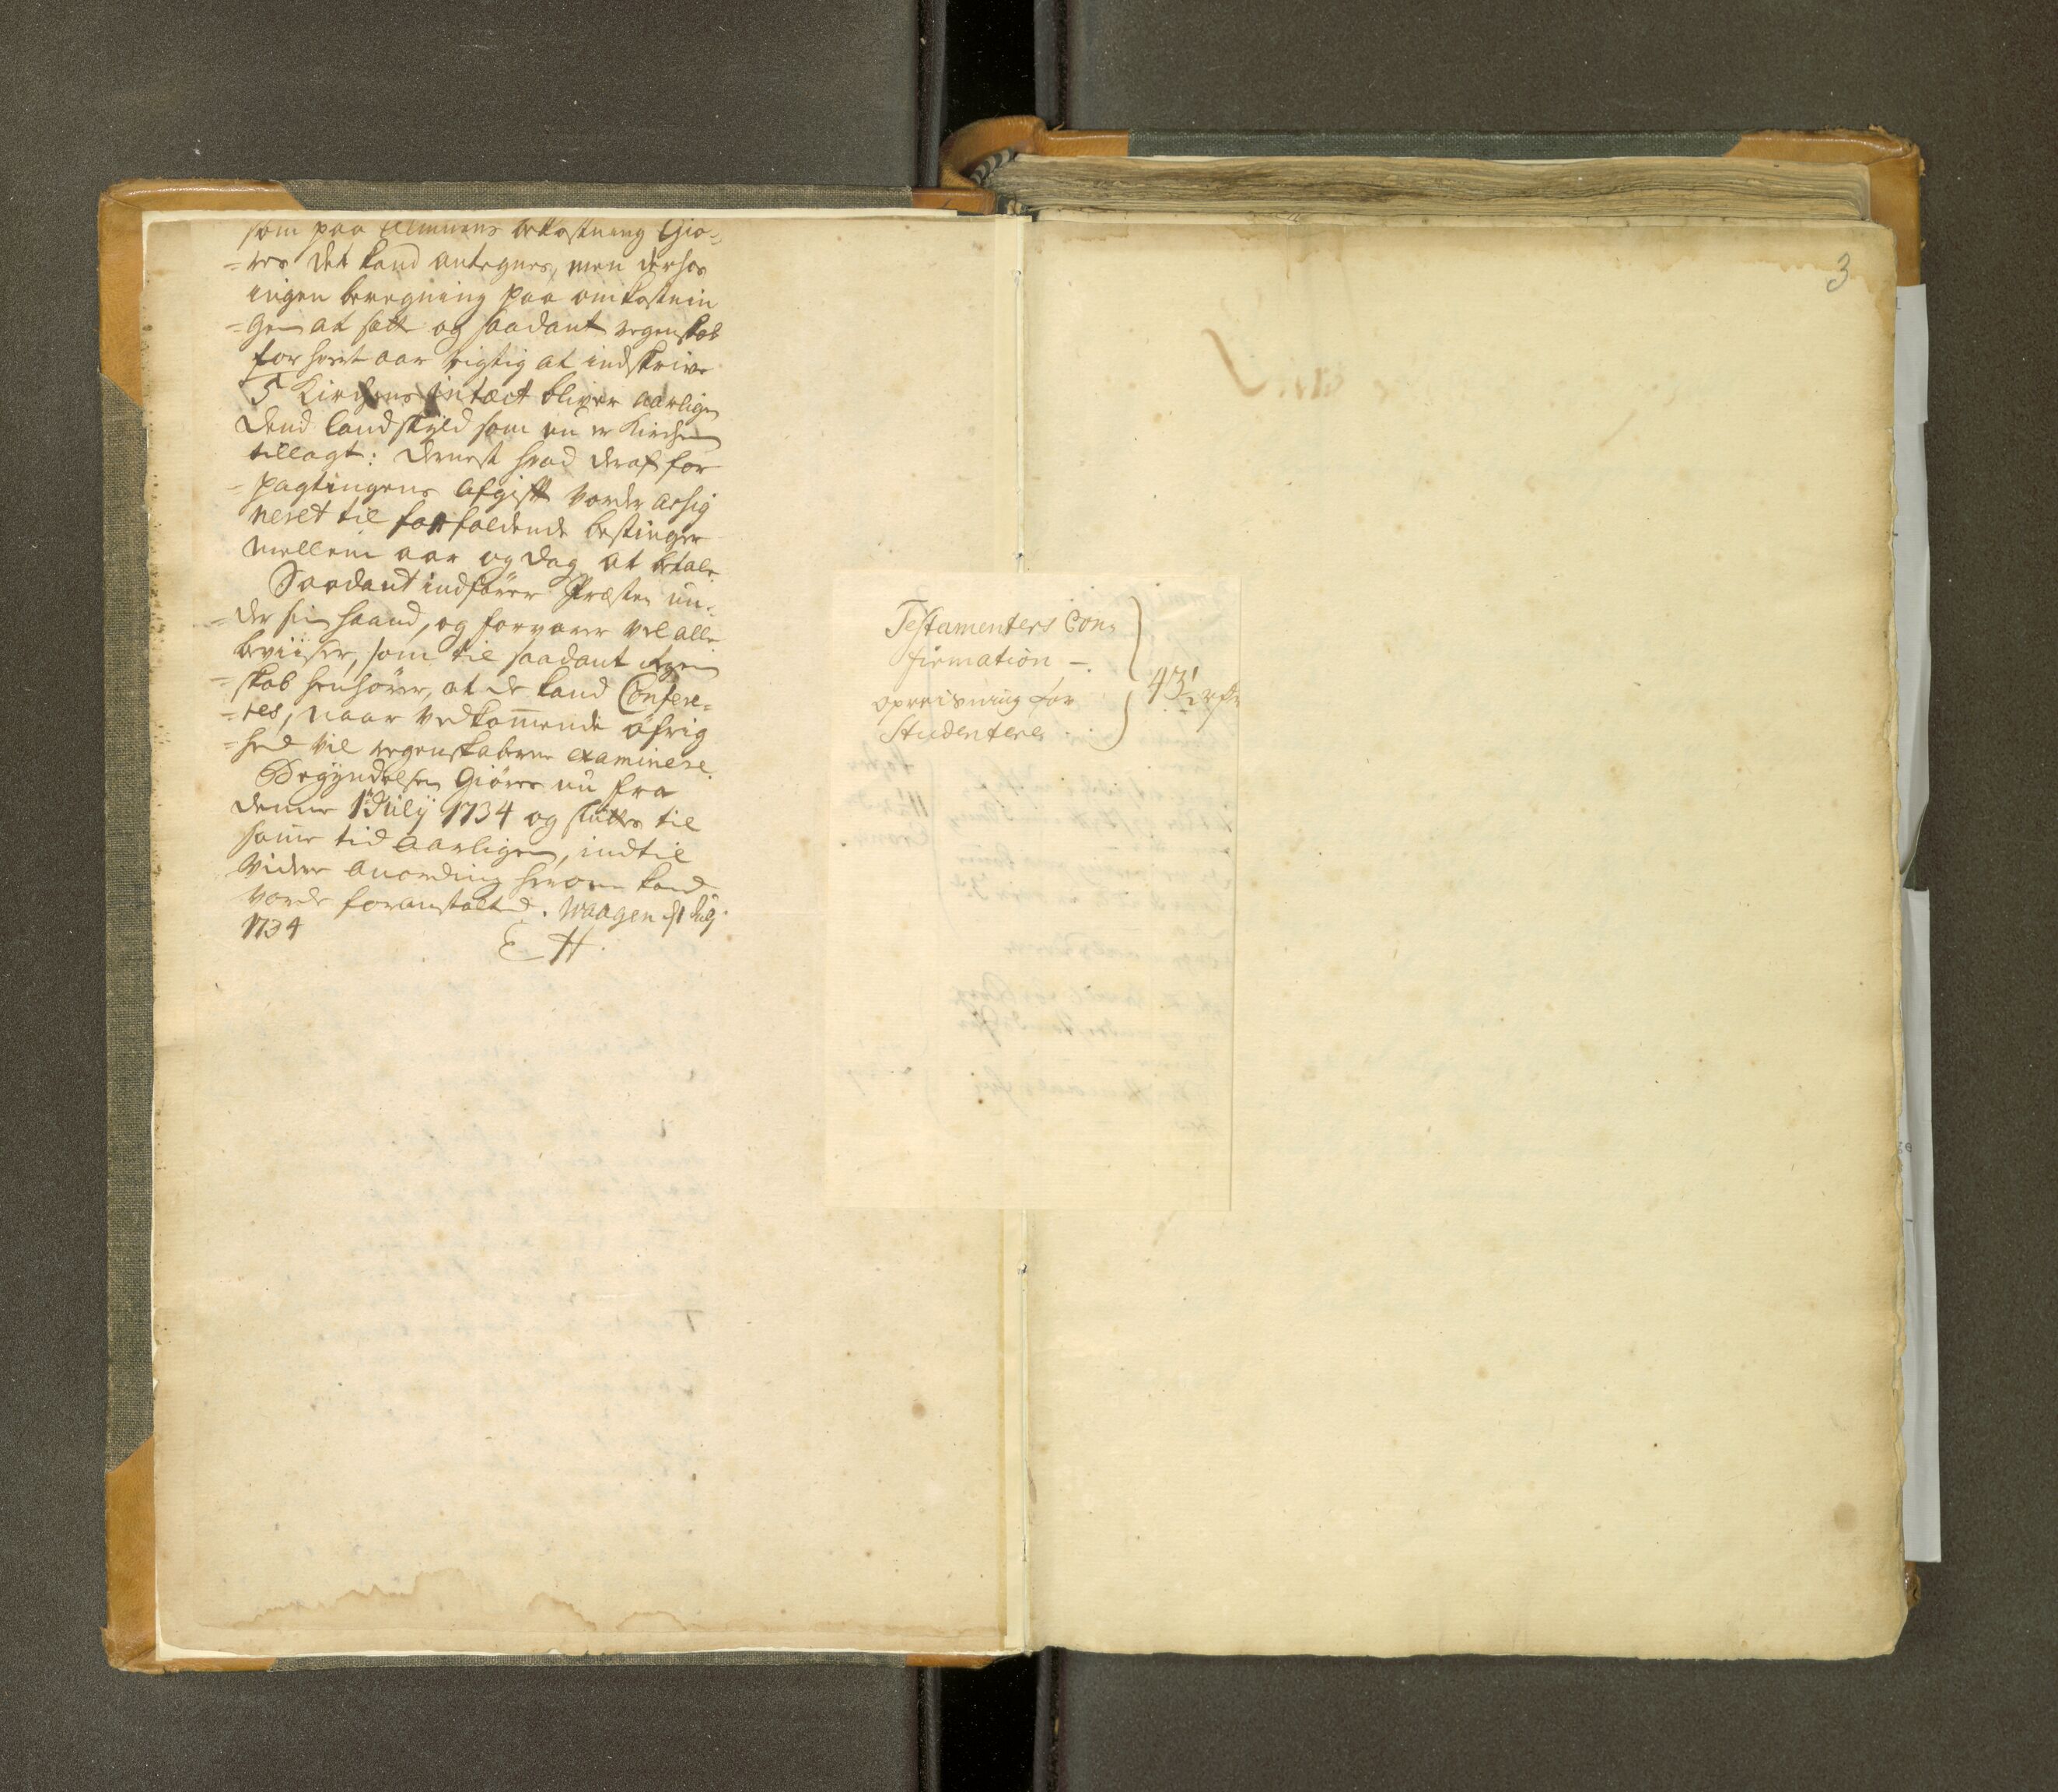 som paa Almuens bekostning Giø-
=res det kand antegnes, men derhos
ingen beregning paa omkostnin
=gen at satt og saadant regenskab
for hvert aar rigtig at indskrive
5 Kirchens intæct bliver aarlige
Dend landskyld som nu er Kirchen
tillagt: dernest hvad deraf for
=pagtingens Afgifft vorder assig
neret til forfaldende bestinger
mellem aar og dag at betale.
Saadant indfører Præsten un-
=der sin haand, og forvarer vel alle
beviiser, som til saadant regen
=skab henhører, at de kand Confere-
=res, naar vedkom̄ende øfrig
=hed vil regenskaberne examinere.
Begyndelsen Giøres nu fra
denne 1 July 1734 og slutter til
samme tid aarligen, indtil
videre anording herom kand
vorde foranstalted. Waagen d 1 Julÿ
1734
E H.
Testamenters Con-
firmation -
opreisning for
Studentere
43 1/2
3